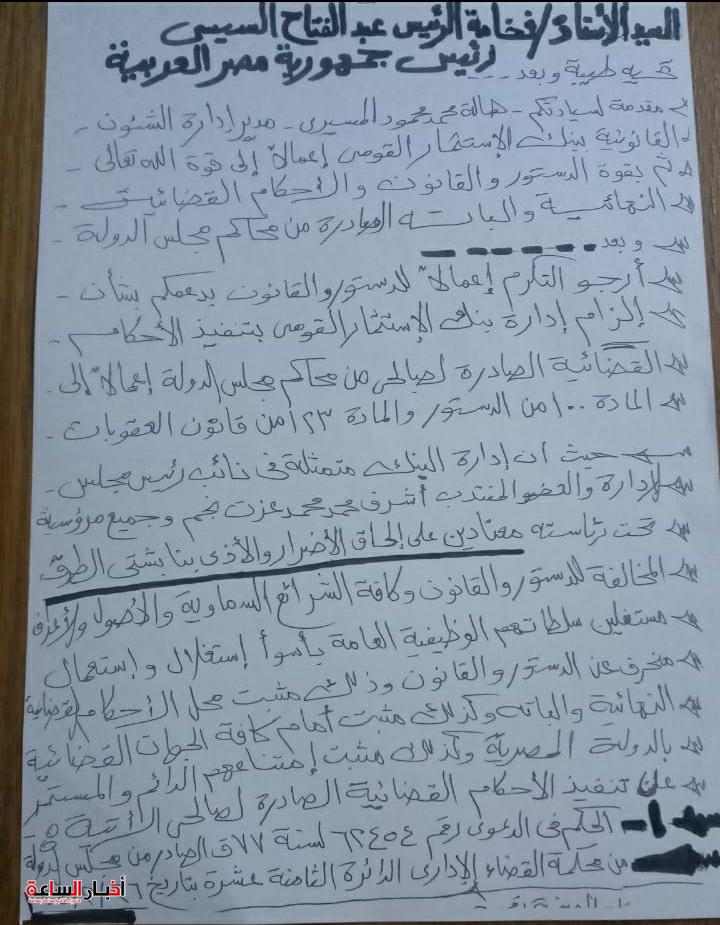 السيد الأستاذ/فخامة الرئيس عبد الفتاح السيسى
رئيس جمهورية مصر العربية
تحيه طيبة وبعد ----
مقدمة لسيادتكم - هالة محمد محمود المسيرى - مدير إدارة الشئون -
القانونية ببنك الإستثمار القومى إعمالاً إلى قوة الله تعالى -
ثم بقوة الدستور والقانون والأحكام القضائية -
النهائية والباته الصادرة من محاكم مجلس الدولة -
وبعد ------
أرجو التكرم إعمالاً للدستور والقانون بدعمكم بشأن -
إلزام إدارة بنك الإستثمار القومى بتنفيذ الأحكام -
القضائية الصادرة لصالحى من محاكم مجلس الدولة إعمالاً إلى -
المادة ١٠٠ من الدستور والمادة ١٢٣ من قانون العقوبات -
حيث أن إدارة البنك متمثلة فى نائب رئيس مجلس -
الإدارة والعضو المنتدب أشرف محمد محمد عزت نجم وجميع مرؤسية
تحت رئاسته معتادين على إلحاق الأضرار والأذى بنا بشتى الطرق
المخالفة للدستور والقانون وكافة الشرائع السماوية والأصول والأعراف
مستغلين سلطاتهم الوظيفية العامة بأسوأ إستغلال وإستعمال
منحرف عن الدستور والقانون وذلك مثبت محل الأحكام القضائية
النهائية والباته وكذلك مثبت أمام كافة الجهات القضائية
بالدولة المصرية وكذلك مثبت إمتناعهم الدائم والمستمر
عن تنفيذ الأحكام القضائية الصادرة لصالحى الأتية
١- الحكم فى الدعوى رقم ٦٢٤٥٤ لسنة ٧٧ق الصادر من مجلس الدولة
من محكمة القضاء الإدارى الدائرة الثامنة عشرة بتاريخ
أخبار الساعة